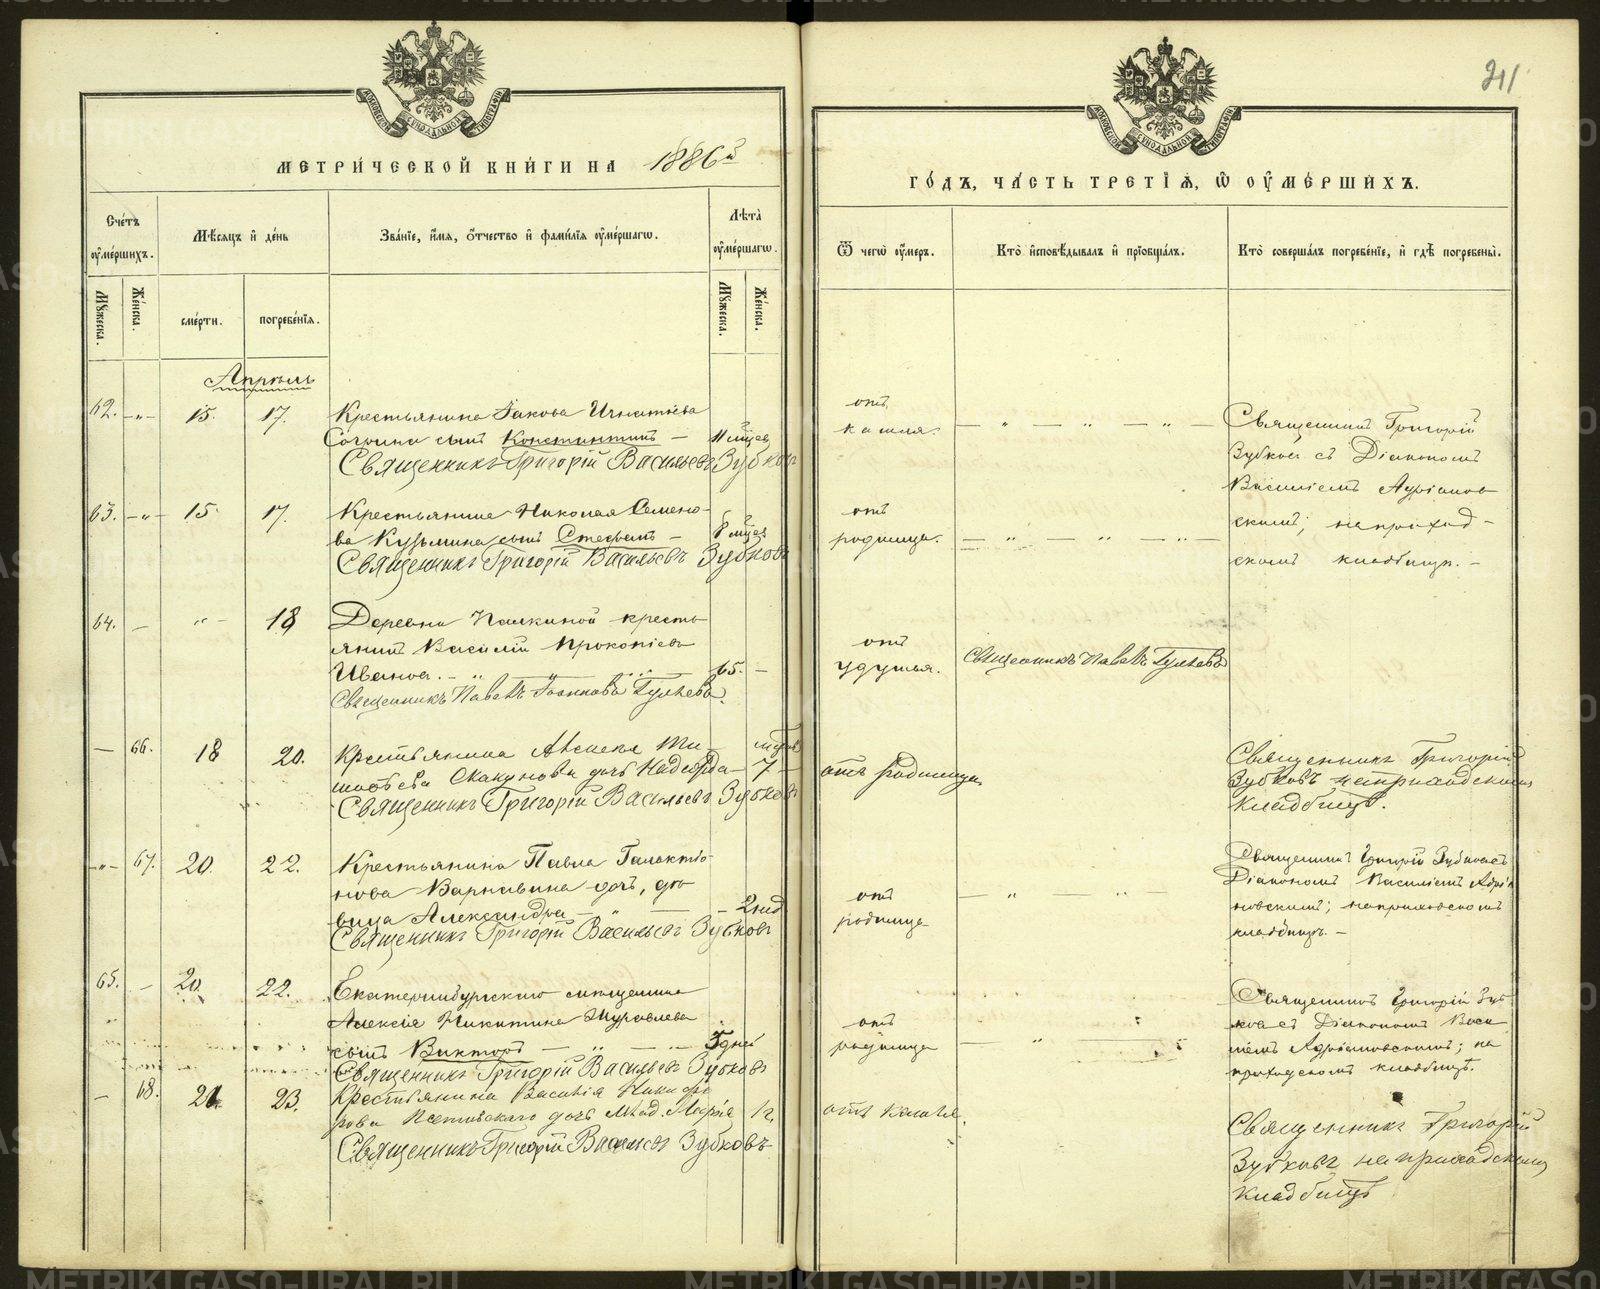 METRIKI.GASO-URAL.RU
МЕТРИ́ЧЕСКОЙ КНИ́ГИ НА 1886й
Сче́тъ оу҆ме́ршихъ.
Мѣ́сяцъ и҆ де́нь
Зва́нїе, и҆́мя, ѻ҆́тчество и҆ фамилїя оу҆ме́ршагѡ.
Лѣ́та оу҆ме́ршагѡ.
Мꙋжеска.
Же́нска.
сме́рти.
погребе́нїя.
Мꙋжеска.
Же́нска.
Апрѣль
62. -"- 15. 17. Крестьянина Iакова Игнатiева
Согрина сынъ Константинъ - 11 мцев
Священникъ Григорiй Васильевъ Зубковъ
63. -"- 15. 17. Крестьянина Николая Семено-
ва Кузьмина сынъ Стефанъ - 8 мцев
Священникъ Григорiй Васильевъ Зубковъ
64. - "- 18 Деревни Палкиной кресть
янинъ Василiй Прокопiевъ
Ивановъ. 65. -
Священникъ Павелъ Iоанновъ Гуляевъ.
- 66. 18 20. Крестьянина Алексея Ти-
мофѣева Скакунова дочь Надежда - 7 -
Священникъ Григорiй Васильевъ Зубковъ
-"- 67. 20. 22. Крестьянина Павла Галактiо-
нова Варнавина дочь, дѣ
вица Александра - 2 нед
Священникъ Григорiй Васильевъ Зубковъ
65. - 20. 22. Екатеринбургскаго мѣщанина
Алексiя Никитина Журавлева
сынъ Викторъ 5 дней
Священникъ Григорiй Васильевъ Зубковъ
- 68. 21. 23. Крестьянина Василiя Никифо
рова дочь млад. Марiя 1 г.
Священникъ Григорiй Васильевъ Зубковъ
211
ГО́ДЪ, ЧА́СТЬ ТРЕТЇЯ, Ѡ҆ ОУ҆МЕ́РШИХЪ.
Ѿ чегѡ̀ оу҆́меръ.
Кто̀ и҆сповѣ́дывалъ и҆ прїѡбща́лъ.
Кто̀ соверша́лъ погребе́нїе, и҆ гдѣ̀ погребены̀.
отъ
кашля.
Священникъ Григорiй
Зубковъ съ Дiакономъ
Василiемъ Адрiанов
скимъ; на приход-
скомъ кладбищѣ. -
отъ
родимца.
отъ
удушья.
Священникъ Павелъ Гуляевъ
отъ родимца
Священникъ Григорiй
Зубковъ на приходскомъ
кладбищѣ.
отъ
родимца
Священникъ Григорiй Зубковъ съ
Дiакономъ Василiемъ Адрiа
новскимъ; на приходскомъ
кладбищѣ. -
отъ
родимца
Священникъ Григорiй Зуб
ковъ съ Дiакономъ Васи
лiемъ Адрiановскимъ; на
приходскомъ кладбищѣ.
отъ кашля.
Священникъ Григорiй
Зубковъ на приходскомъ
кладбищѣ
METRIKI.GASO-URAL.RU